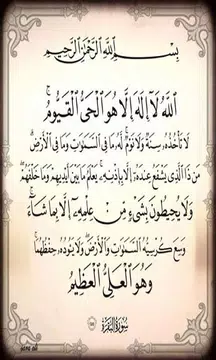 بِسْمِ ٱللَّهِ ٱلرَّحْمَٰنِ ٱلرَّحِيمِ
ٱللَّهُ لَآ إِلَٰهَ إِلَّا هُوَ ٱلْحَىُّ ٱلْقَيُّومُ ۚ
لَا تَأْخُذُهُۥ سِنَةٌ وَلَا نَوْمٌ ۚ لَّهُۥ مَا فِى ٱلسَّمَٰوَٰتِ وَمَا فِى ٱلْأَرْضِ ۗ
مَن ذَا ٱلَّذِى يَشْفَعُ عِندَهُۥٓ إِلَّا بِإِذْنِهِۦ ۚ يَعْلَمُ مَا بَيْنَ أَيْدِيهِمْ وَمَا خَلْفَهُمْ ۖ
وَلَا يُحِيطُونَ بِشَىْءٍ مِّنْ عِلْمِهِۦٓ إِلَّا بِمَا شَآءَ ۚ
وَسِعَ كُرْسِيُّهُ ٱلسَّمَٰوَٰتِ وَٱلْأَرْضَ ۖ وَلَا يَـُٔودُهُۥ حِفْظُهُمَا ۚ
وَهُوَ ٱلْعَلِىُّ ٱلْعَظِيمُ
سُورَةُ الْبَقَرَة